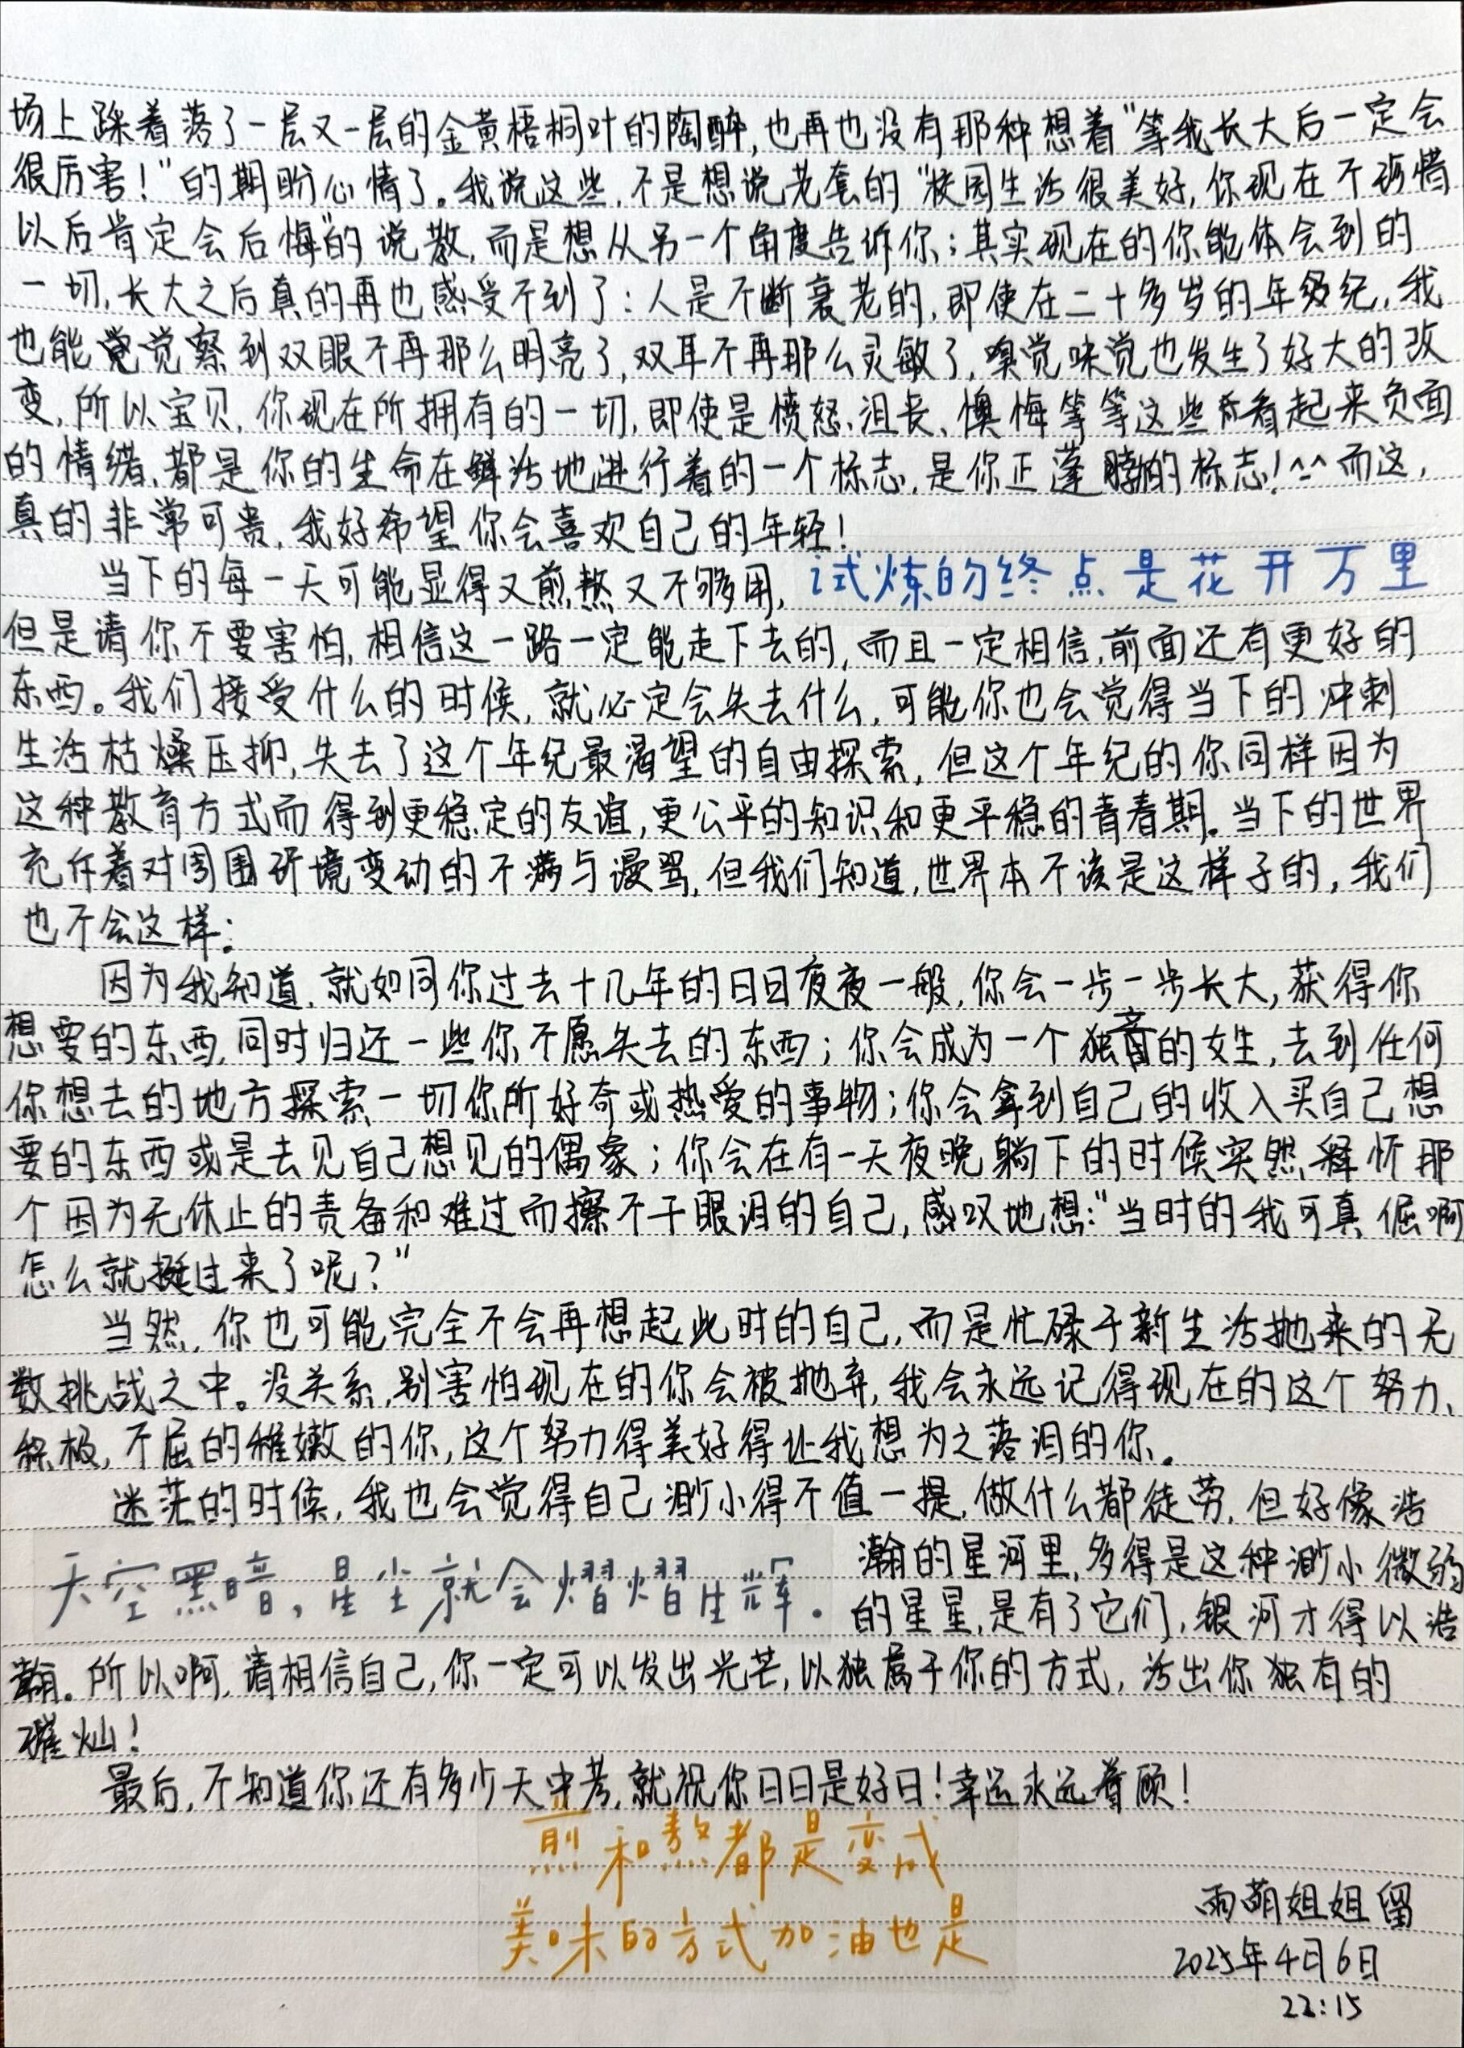 场上踩着落了一层又一层的金黄梧桐叶的陶醉，也再也没有那种想着“等我长大后一定会
很厉害！”的期盼心情了。我说这些，不是想说老套的“校园生活很美好，你现在不珍惜
以后肯定会后悔”的说教，而是想从另一个角度告诉你；其实现在的你能体会到的
一切，长大之后真的再也感受不到了：人是不断衰老的，即使在二十多岁的年纪，我
也能觉察到双眼不再那么明亮了，双耳不再那么灵敏了，嗅觉味觉也发生了好大的改
变，所以宝贝，你现在所拥有的一切，即使是愤怒、沮丧、懊悔等等这些看起来负面
的情绪，都是你的生命在鲜活地进行着的一个标志，是你正蓬勃的标志！^^而这，
真的非常可贵，我好希望你会喜欢自己的年轻！
当下的每一天可能显得又煎熬又不够用，
试炼的终点是花开万里
但是请你不要害怕，相信这一路一定能走下去的，而且一定相信，前面还有更好的
东西。我们接受什么的时候，就必定会失去什么，可能你也会觉得当下的冲刺
生活枯燥压抑，失去了这个年纪最渴望的自由探索，但这个年纪的你同样因为
这种教育方式而得到更稳定的友谊，更公平的知识和更平稳的青春期。当下的世界
充斥着对周围环境变动的不满与谩骂，但我们知道，世界本不该是这样子的，我们
也不会这样；
因为我知道，就如同你过去十几年的日日夜夜一般，你会一步一步长大，获得你
想要的东西，同时归还一些你不愿失去的东西；你会成为一个独立的女生，去到任何
你想去的地方探索一切你所好奇或热爱的事物；你会拿到自己的收入买自己想
要的东西或是去见自己想见的偶象；你会在有一天夜晚躺下的时候突然释怀那
个因为无休止的责备和难过而擦不干眼泪的自己，感叹地想：“当时的我可真倔啊
怎么就挺过来了呢？”
当然，你也可能完全不会再想起此时的自己，而是忙碌于新生活抛来的无
数挑战之中。没关系，别害怕现在的你会被抛弃，我会永远记得现在的这个努力、
积极，不屈的稚嫩的你，这个努力得美好得让我想为之落泪的你。
迷茫的时候，我也会觉得自己渺小得不值一提，做什么都徒劳，但好像浩
天空黑暗，星尘就会熠熠生辉。
瀚的星河里，多得是这种渺小微弱
的星星，是有了它们，银河才得以浩
瀚。所以啊，请相信自己，你一定可以发出光芒，以独属于你的方式，活出你独有的
璀灿！
最后，不知道你还有多少天中考，就祝你日日是好日！幸运永远眷顾！
煎和熬都是变成
美味的方式加油也是
雨萌姐姐留
2025年4月6日
22:15